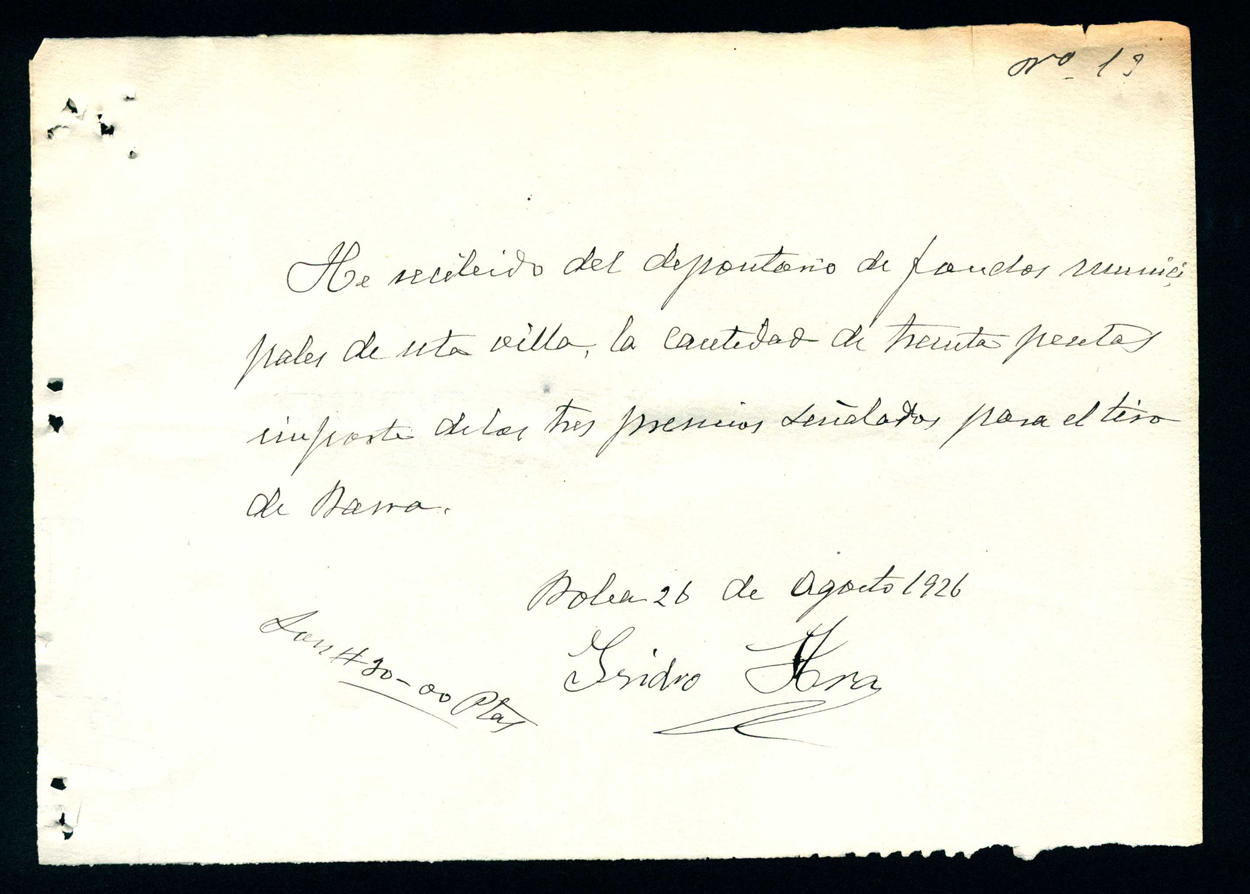 Nº 19
He recibido del depositario de fondos munici
pales de esta villa, la cantidad de treinta pesetas
importe de los tres premios señalados para el tiro
de Barra.
Bolea 26 de Agosto 1926
Son # 30-00 Ptas
Isidro